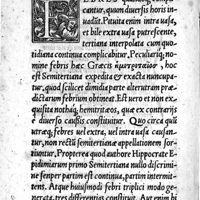 cantur, quum diuersis horis in
uadūt. Pituita enim intra uasa,
et bile extra uasa putrescente,
tertiana interpolata cum quo-
tidiana continua complicabitur. Peculiariq; no
mine febris hæc Græcis ἡμιτριταῖον, hoc
est Semitertiana expedita & exacta nuncupa-
tur, quod scilicet dimidia parte alterutram præ-
dictarum febrium obtineat. Est uero et non exa-
quisita nothaq; hemitritæos, quæ ex contrariis
e diuerso causis constituitur. Quo circa qui
utræq; febres uel extra, uel intra uasa causan-
tur, non rectū semitertianæ appellationem for-
tiuntur. Propterea quod authore Hippocrate E-
pidimiarum primo Semitertiana nullo discrimi-
ne semper partim est continua, partim intermit-
tens. Atque huiusmodi febris triplici modo ge-
nerata, tres differentias constituit. Aut enim bi